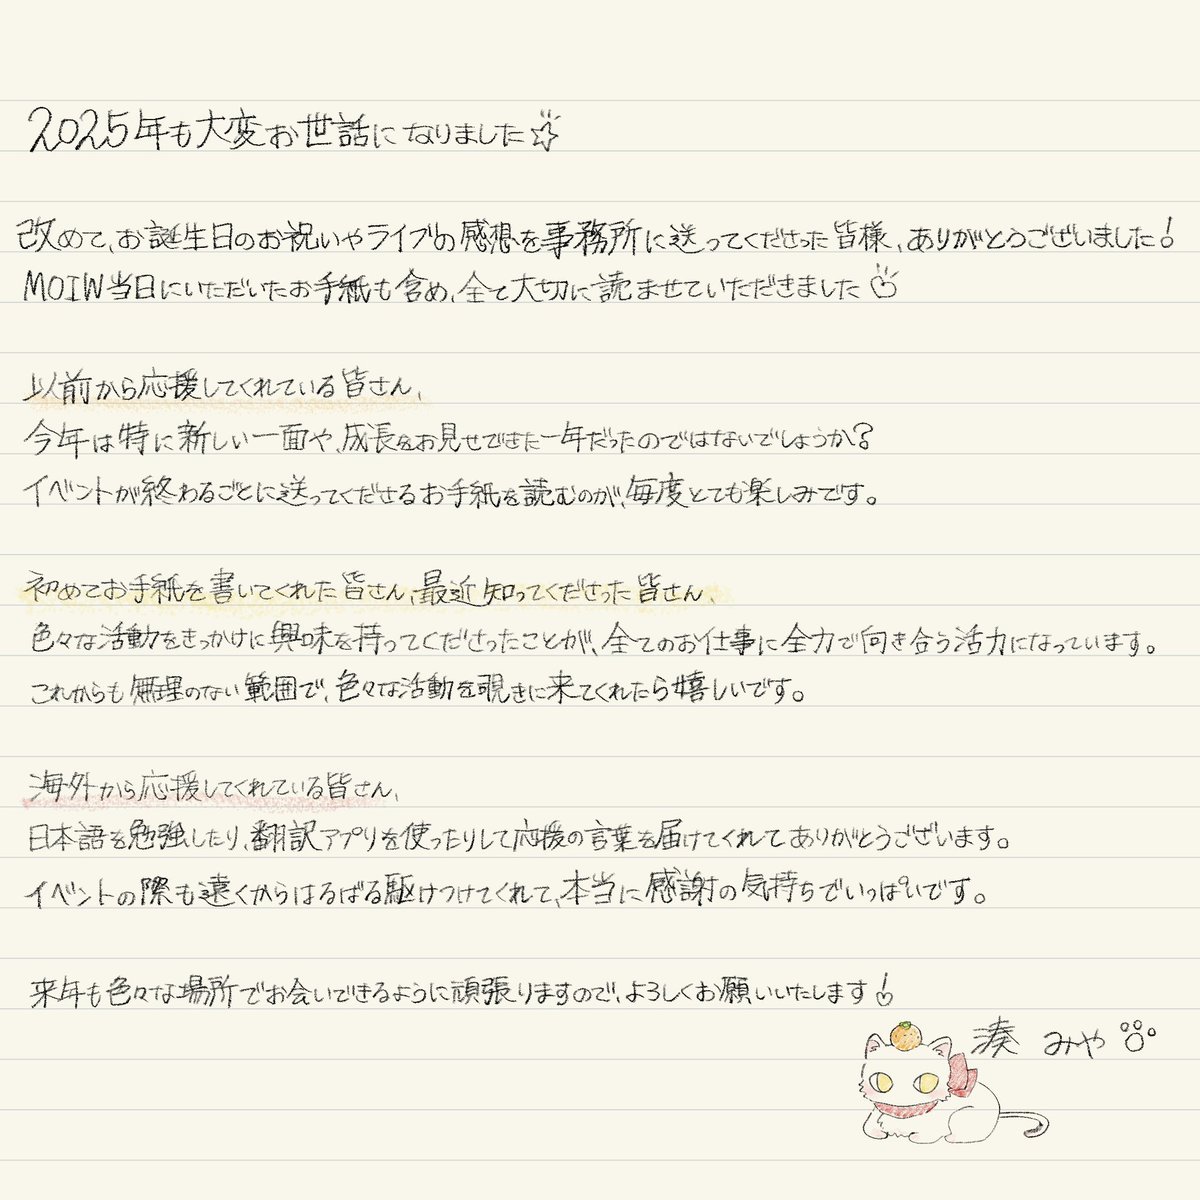 2025年も大変お世話になりました☆
改めて、お誕生日のお祝いやライブの感想を事務所に送ってくださった皆様、ありがとうございました!
MOIW当日にいただいたお手紙も含め、全て大切に読ませていただきました
以前から応援してくれている皆さん、
今年は特に新しい一面や、成長をお見せできた一年だったのではないでしょうか?
イベントが終わるごとに送ってくださるお手紙を読むのが、毎度とても楽しみです。
初めてお手紙を書いてくれた皆さん、最近知ってくださった皆さん、
色々な活動をきっかけに興味を持ってくださったことが、全てのお仕事に全力で向き合う活力になっています。
これからも無理のない範囲で、色々な活動を覗きに来てくれたら嬉しいです。
海外から応援してくれている皆さん、
日本語を勉強したり、翻訳アプリを使ったりして応援の言葉を届けてくれてありがとうございます。
イベントの際も遠くからはるばる駆けつけてくれて、本当に感謝の気持ちでいっぱいです。
来年も色々な場所でお会いできるように頑張りますので、よろしくお願いいたします!
湊 みや